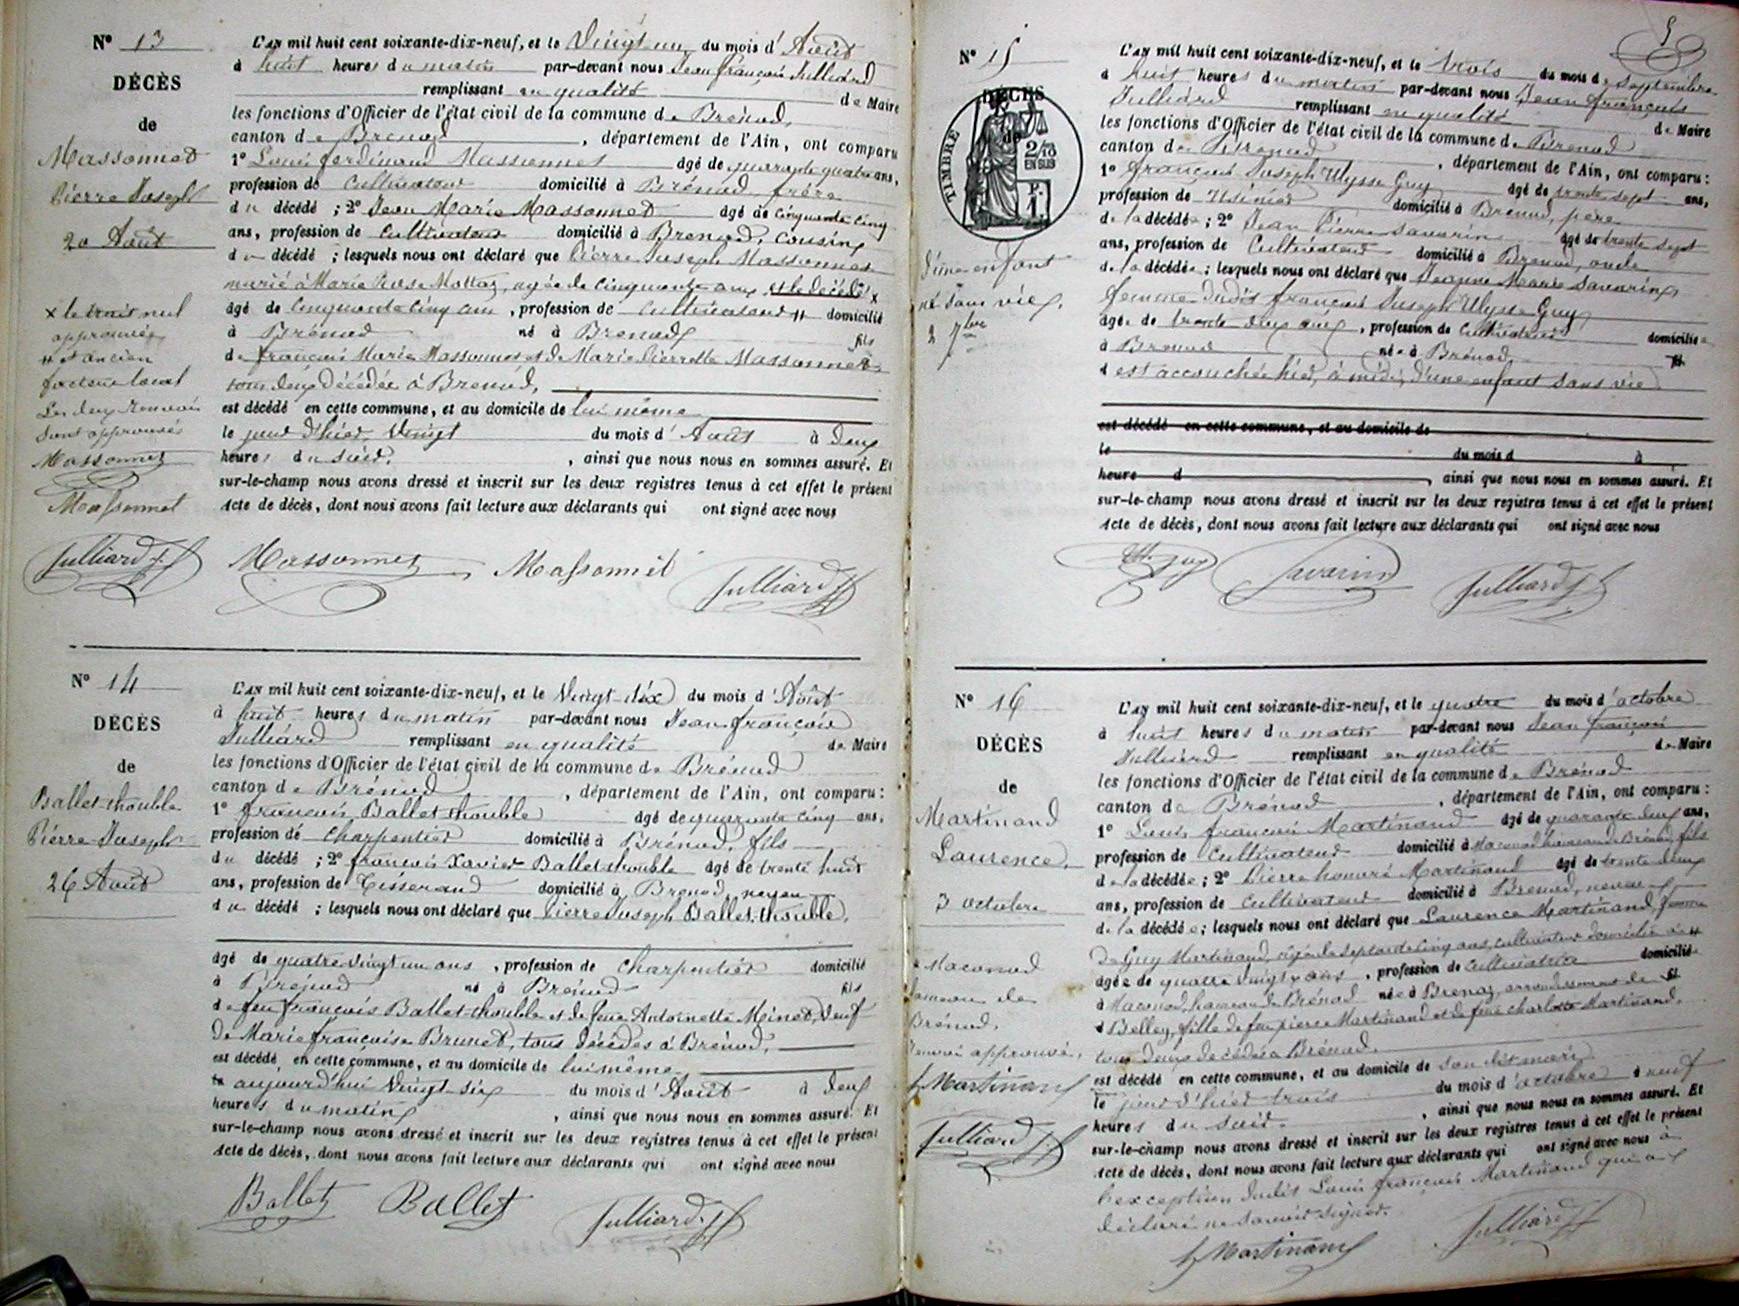 Nº 13
DÉCÈS
de
Massonnet
Pierre Joseph
20 Août
x le trait nul
approuvé
# et ancien
facteur local
Les deux renvois
sont approuvés
Massonnet
Massonnet
Julliard J.f
L'AN mil huit cent soixante-dix-neuf, et le Vingt un du mois d' Août
à huit heures du matin par-devant nous Jean françois Julliard
remplissant en qualité de Maire
les fonctions d'Officier de l'état civil de la commune de Brénod,
canton de Brenod, département de l'Ain, ont comparu
1º Louis ferdinand Massonnet âgé de quarante quatre ans,
profession de Cultivateur domicilié à Brénod frère
du décédé ; 2º Jean Marie Massonnet âgé de cinquante cinq
ans, profession de Cultivateur domicilié à Brenod, cousin
du décédé ; lesquels nous ont déclaré que Pierre Joseph Massonnet
marié à Marie Rose Mottaz, agée de cinquante ans, et le décédé x
âgé de Cinquante cinq ans, profession de Cultivateur # domicilié
à Brénod né à Brenod fils
de françois Marie Massonnet et de Marie Pierrette Massonnet
tous deux décédés à Brenod,
est décédé en cette commune, et au domicile de lui même
le jour d'hier, Vingt du mois d' Août à deux
heures du soir, ainsi que nous nous en sommes assuré. Et
sur-le-champ nous avons dressé et inscrit sur les deux registres tenus à cet effet le présent
Acte de décès, dont nous avons fait lecture aux déclarants qui ont signé avec nous
Massonnet Massonnet Julliard J.f
Nº 14
DÉCÈS
de
Ballet thouble
Pierre Joseph
26 Août
L'AN mil huit cent soixante-dix-neuf, et le Vingt six du mois d' Août
à huit heures du matin par-devant nous Jean françois
Julliard remplissant en qualité de Maire
les fonctions d'Officier de l'état civil de la commune de Brénod
canton de Brénod, département de l'Ain, ont comparu :
1º françois Ballet thouble âgé de quarante cinq ans,
profession de charpentier domicilié à Brénod, fils
du décédé ; 2º françois Xavier Ballet thouble âgé de trente huit
ans, profession de Tisserand domicilié à Brenod, neveu
du décédé ; lesquels nous ont déclaré que Pierre Joseph Ballet thouble,
âgé de quatre vingt un ans, profession de Charpentier domicilié
à Brénod né à Brénod fils
de feu françois Ballet thouble et de feue Antoinette Minet, veuf
de Marie françoise Brunet, tous décédés à Brénod,
est décédé en cette commune, et au domicile de lui même,
le aujourd'hui Vingt six du mois d' Août à deux
heures du matin, ainsi que nous nous en sommes assuré. Et
sur-le-champ nous avons dressé et inscrit sur les deux registres tenus à cet effet le présent
Acte de décès, dont nous avons fait lecture aux déclarants qui ont signé avec nous
Ballet Ballet Julliard J.f
5
Nº 15
DÉCÈS
de
TIMBRE
2/10
EN SUS
1f.
d'une enfant
né sans vie,
2 7bre
L'AN mil huit cent soixante-dix-neuf, et le trois du mois de septembre
à huit heures du matin par-devant nous Jean françois
Julliard remplissant en qualité de Maire
les fonctions d'Officier de l'état civil de la commune de Brénod
canton de Brenod, département de l'Ain, ont comparu :
1º françois Joseph Ulysse Guy âgé de trente sept ans,
profession de Usinier domicilié à Brenod, père
de la décédée ; 2º Jean Pierre Savarin âgé de trente sept
ans, profession de Cultivateur domicilié à Brenod, oncle
de la décédée ; lesquels nous ont déclaré que Jeanne Marie Savarin,
femme dudit françois Joseph Ulysse Guy
âgée de trente deux ans, profession de Cultivatrice domiciliée
à Brenod née à Brénod,
est accouchée hier, à midi, d'une enfant sans vie
est décédé en cette commune, et au domicile de
le du mois d à
heure d, ainsi que nous nous en sommes assuré. Et
sur-le-champ nous avons dressé et inscrit sur les deux registres tenus à cet effet le présent
Acte de décès, dont nous avons fait lecture aux déclarants qui ont signé avec nous
Guy Savarin Julliard J.f
Nº 16
DÉCÈS
de
Martinand
Laurence,
3 octobre
Maconod
hameau de
Brénod,
renvoi approuvé,
h Martinand
Julliard J.f
L'AN mil huit cent soixante-dix-neuf, et le quatre du mois d' octobre
à huit heures du matin par-devant nous Jean françois
Julliard remplissant en qualité de Maire
les fonctions d'Officier de l'état civil de la commune de Brénod
canton de Brénod, département de l'Ain, ont comparu :
1º Louis françois Martinand âgé de quarante deux ans,
profession de Cultivateur domicilié à Maconod hameau de Brénod, fils
de la décédée ; 2º Pierre honoré Martinand âgé de trente deux
ans, profession de Cultivateur domicilié à Brenod, neveu
de la décédée ; lesquels nous ont déclaré que Laurence Martinand, femme
De Guy Martinand, âgé de septante cinq ans, cultivateur domicilié à #
âgée de quatre vingts ans, profession de Cultivatrice domiciliée
à Maconod, hameau de Brénod née à Brenaz, arrondissement de
Belley, fille de feu pierre Martinand et de feue charlotte Martinand,
tous deux décédés à Brénod,
est décédé en cette commune, et au domicile de son dit mari
le jour d'hier trois du mois d' octobre à neuf
heures du soir, ainsi que nous nous en sommes assuré. Et
sur-le-champ nous avons dressé et inscrit sur les deux registres tenus à cet effet le présent
Acte de décès, dont nous avons fait lecture aux déclarants qui ont signé avec nous à
l'exception dudit Louis françois Martinand qui a
déclaré ne savoir signer.
h Martinand Julliard J.f